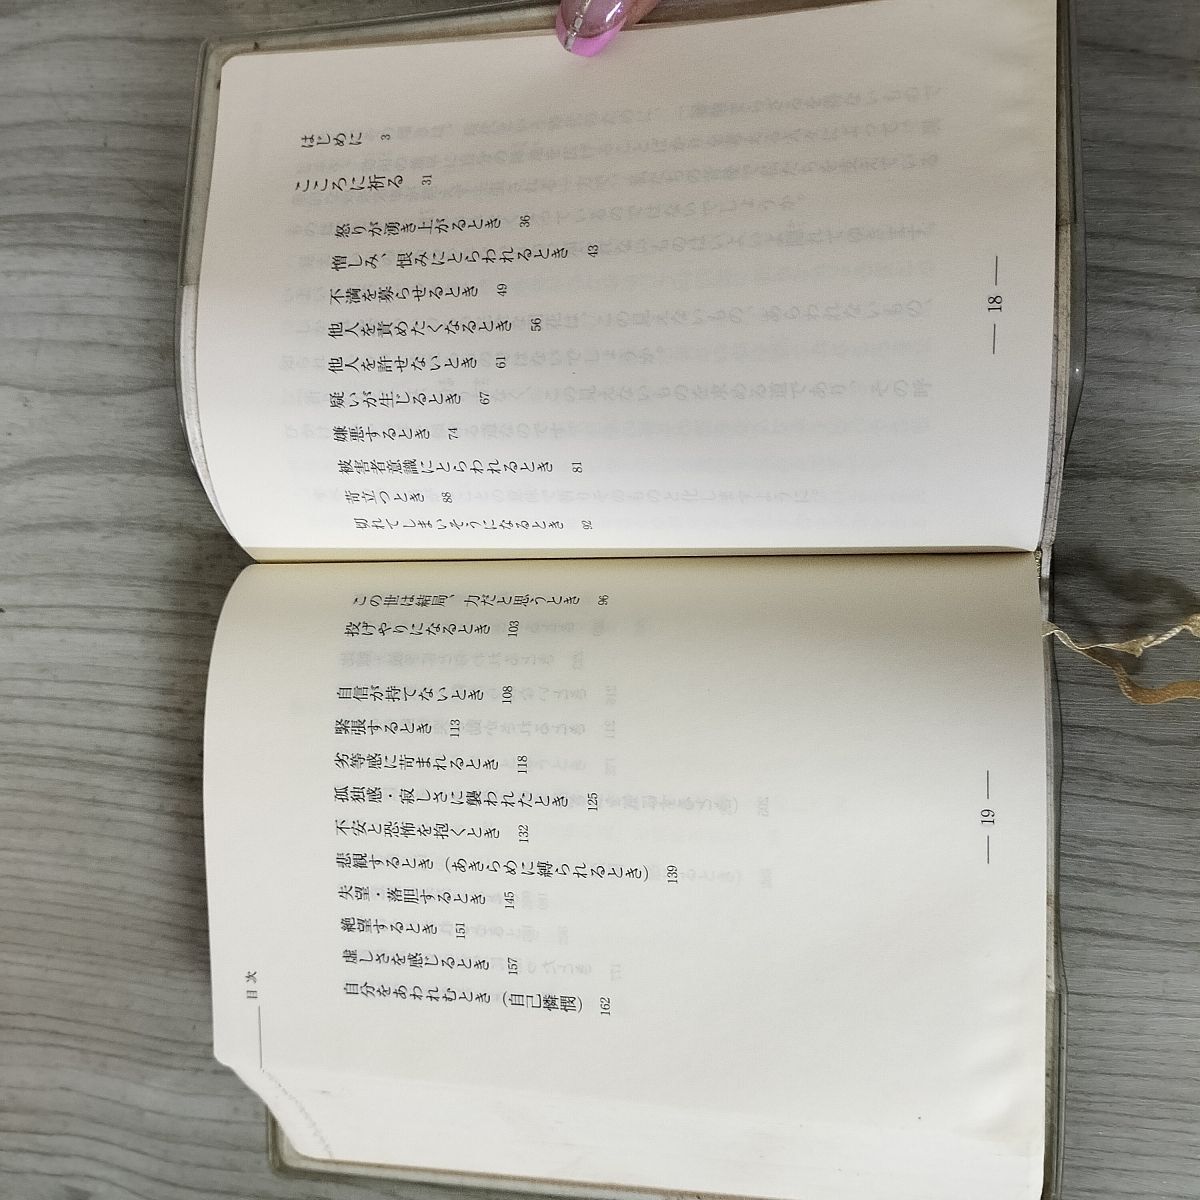 はじめに 3
こころに祈る 31
怒りが湧き上がるとき 36
憎しみ、恨みにとらわれるとき 43
不満を募らせるとき 49
他人を責めたくなるとき 56
他人を許せないとき 61
疑いが生じるとき 67
嫌悪するとき 74
被害者意識にとらわれるとき 81
苛立つとき 88
切れてしまいそうになるとき 92
18
この世は結局、力だと思うとき 96
投げやりになるとき 103
自信が持てないとき 108
緊張するとき 113
劣等感に苛まれるとき 118
孤独感・寂しさに襲われたとき 125
不安と恐怖を抱くとき 132
悲観するとき(あきらめに縛られるとき) 139
失望・落胆するとき 145
絶望するとき 151
虚しさを感じるとき 157
自分をあわれむとき(自己憐憫) 162
目次
19